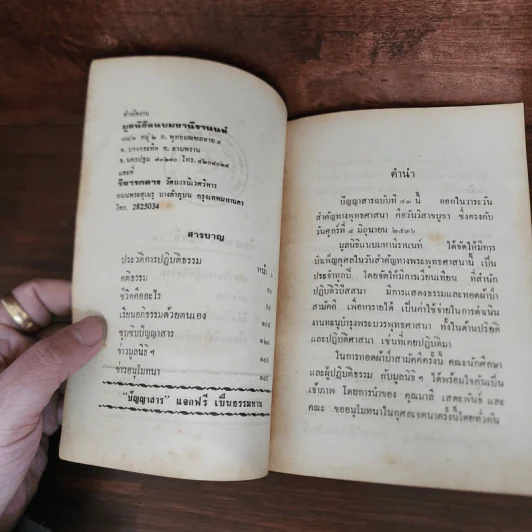 สำนักงาน
มูลนิธิแนบมหานีรานนท์
๘๘/๑ หมู่ ๒ ถ. พุทธมณฑลสาย ๔
ต. บางกระทึก อ. สามพราน
จ. นครปฐม ๗๓๒๑๐ โทร.
และที่
วิหารกคาง วัดบวรนิเวศวิหาร
ถนนพระสุเมรุ บางลำภูบน กรุงเทพมหานคร
โทร. 2825034
สารบาญ
หน้า
ประวัติการปฏิบัติธรรม
คติธรรม
ชีวิตคืออะไร
เรียนอภิธรรมด้วยตนเอง
ซุบซิบปัญญาสาร
ข่าวมูลนิธิ ฯ
ข่าวอนุโมทนา
"ปัญญาสาร" แจกฟรี เป็นธรรมทาน
คำนำ
ปัญญาสารฉบับที่ ๔๓ นี้ ออกในวาระวัน
สำคัญทางพุทธศาสนา คือวันวิสาขบูชา ซึ่งตรงกับ
วันศุกร์ที่ ๔ มิถุนายน ๒๕๓๖
มูลนิธิแนบมหานีรานนท์ ได้จัดให้มีการ
บำเพ็ญกุศลในวันสำคัญทางพระพุทธศาสนานี้ เป็น
ประจำทุกปี โดยจัดให้มีการเวียนเทียน ที่สำนัก
ปฏิบัติวิปัสสนา มีการแสดงธรรมและทอดผ้าป่า
สามัคคี เพื่อหารายได้ เป็นค่าใช้จ่ายในการดำเนิน
งานทะนุบำรุงพระบวรพุทธศาสนา ทั้งในด้านปริยัติ
และปฏิบัติศาสนา เช่นที่เคยปฏิบัติมา
ในการทอดผ้าป่าสามัคคีครั้งนี้ คณะนักศึกษา
และผู้ปฏิบัติธรรม กับมูลนิธิ ฯ ได้พร้อมใจกันเป็น
เจ้าภาพ โดยการนำของ คุณมาลี เสตะพันธ์ และ
คณะ ขออนุโมทนาในกุศลเจตนาครั้งนี้โดยทั่วกัน